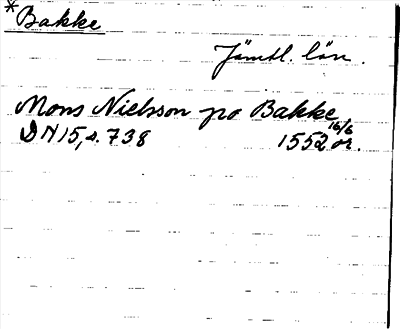 *Bakke
Jämtl. län.
Mons Nielsson po Bakke
DN15, s. 738 1552 16/6 or.